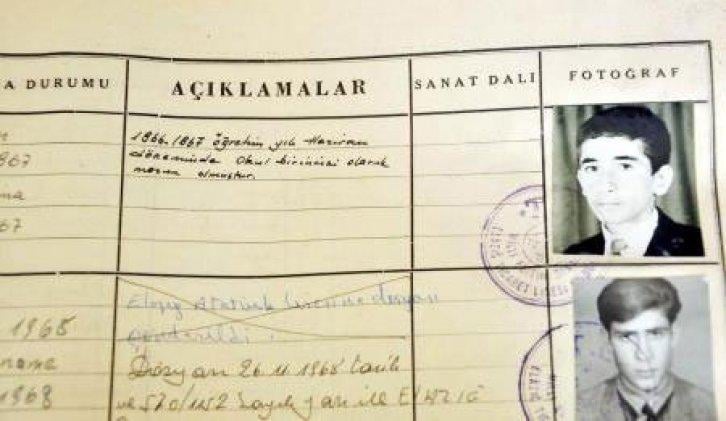 A DURUMU AÇIKLAMALAR SANAT DALI FOTOĞRAF
1966-1967 öğretim yılı Haziran
döneminde Okul birincisi olarak
mezun olmuştur.
967
67
Elazığ Atatürk Lisesine dosyası
gönderildi.
1968
Dosyası 26.11.1968 tarih
name
ve 570/1152 Sayılı yazı ile ELAZIĞ
1968